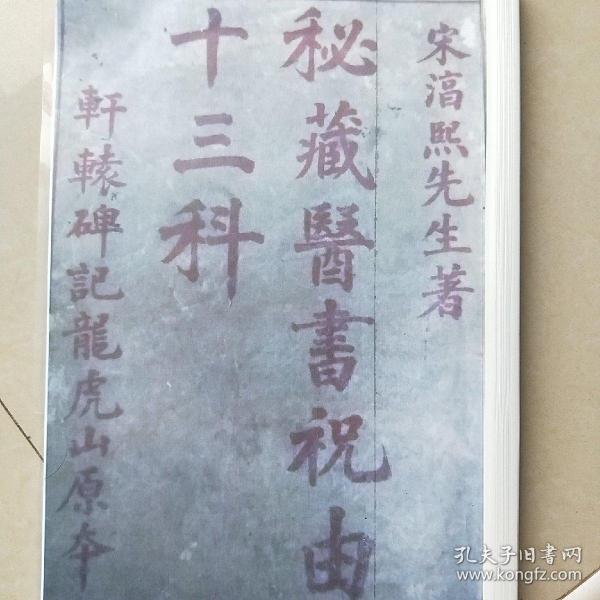 宋淳熙先生著
秘藏醫書祝由
十三科
軒轅碑記龍虎山原本
孔夫子旧书网
www.kongfz.com